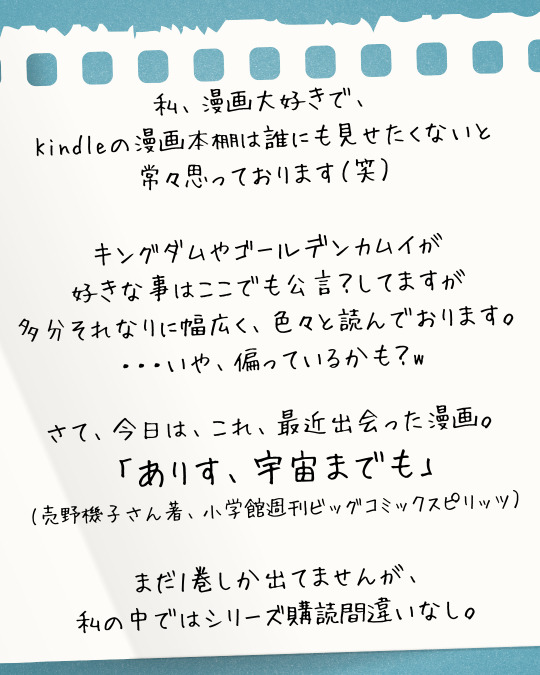 私、漫画大好きで、
kindleの漫画本棚は誰にも見せたくないと
常々思っております(笑)
キングダムやゴールデンカムイが
好きな事はここでも公言?してますが
多分それなりに幅広く、色々と読んでおります。
・・・いや、偏っているかも?w
さて、今日は、これ、最近出会った漫画。
「ありす、宇宙までも」
(売野機子さん著、小学館週刊ビッグコミックスピリッツ)
まだ1巻しか出てませんが、
私の中ではシリーズ購読間違いなし。